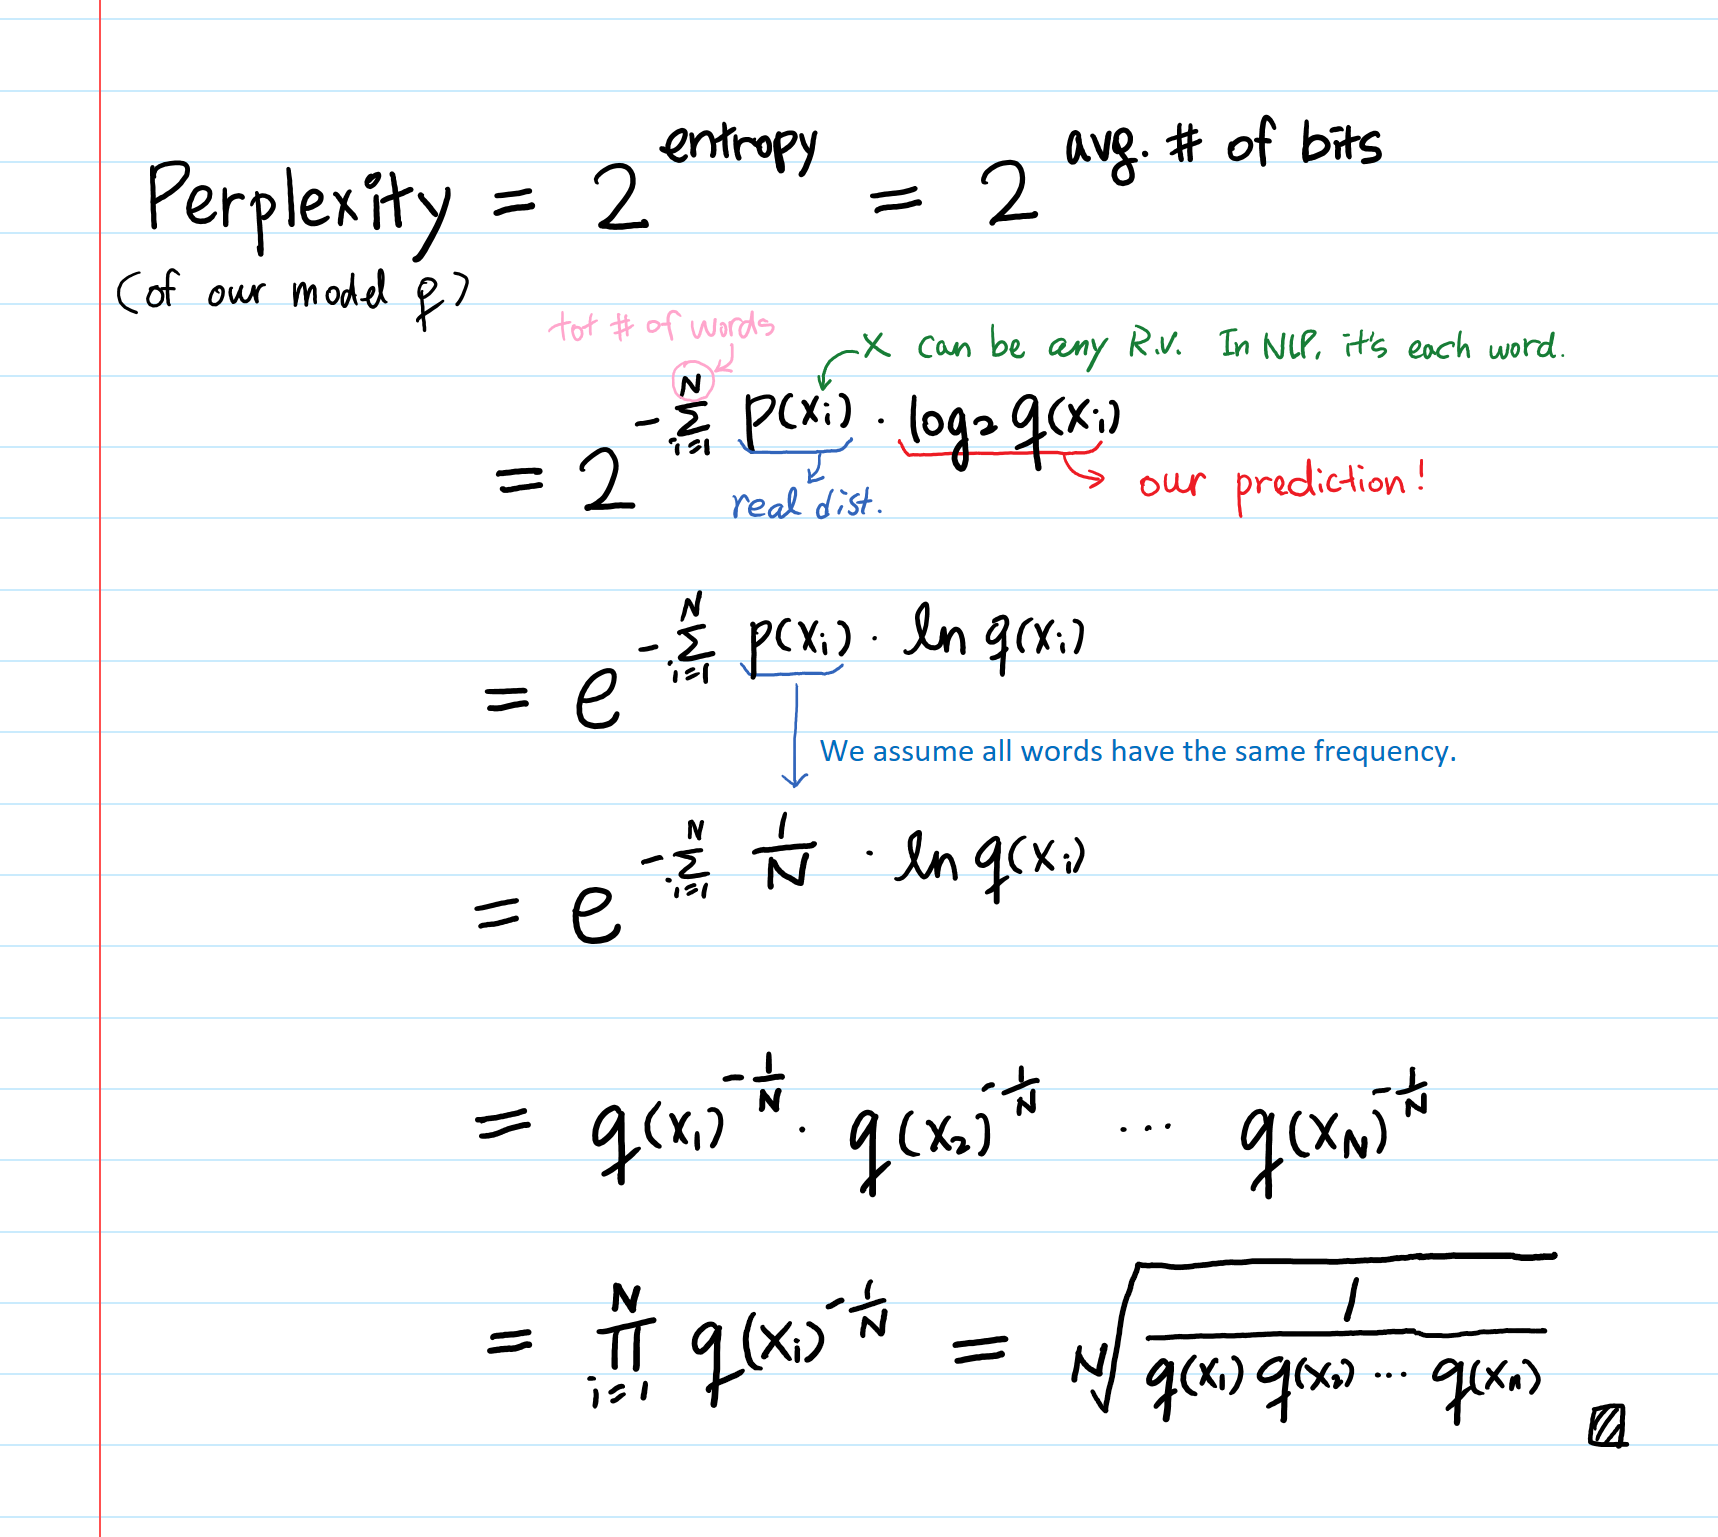 Perplexity = 2^entropy = 2^avg. # of bits
(of our model p)
tot # of words
x can be any R.V. In NLP, it's each word.
= 2^{-∑_{i=1}^{N} p(xᵢ) · log₂ q(xᵢ)}
real dist.
our prediction!
= e^{-∑_{i=1}^{N} p(xᵢ) · ln q(xᵢ)}
We assume all words have the same frequency.
= e^{-∑_{i=1}^{N} 1/N · ln q(xᵢ)}
= q(x₁)^{-1/N} · q(x₂)^{-1/N} ... q(x_N)^{-1/N}
= ∏_{i=1}^{N} q(xᵢ)^{-1/N} = ᴺ√(1 / (q(x₁) q(x₂) ... q(xₙ)))